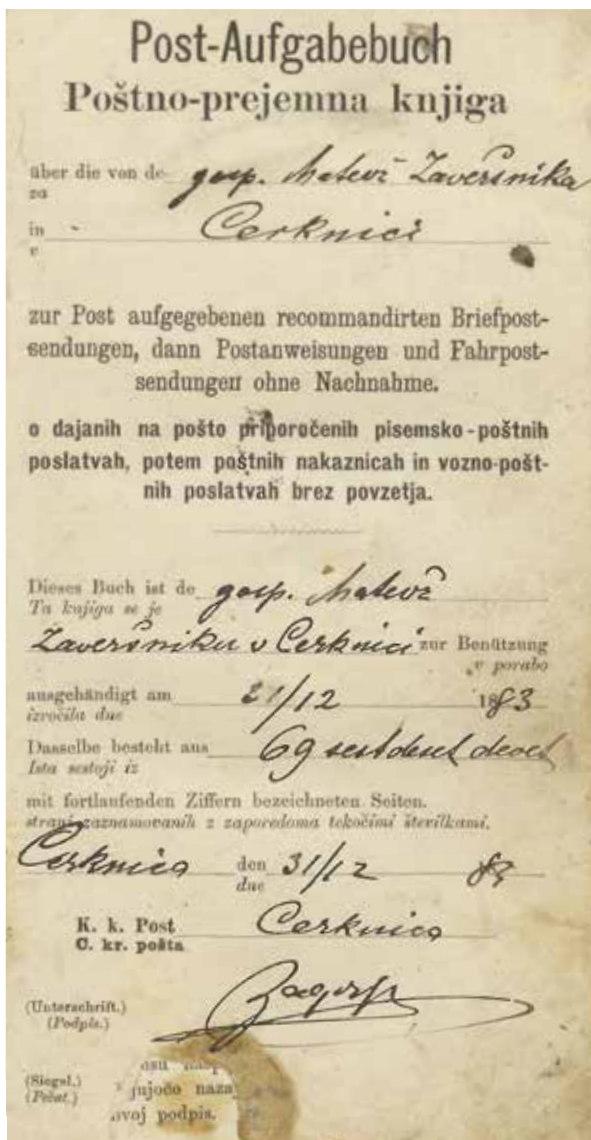 Post-Aufgabebuch
Poštno-prejemna knjiga
über die von de gosp. Matevž Zaveršnika
za
in Cerknici
v
zur Post aufgegebenen recommandirten Briefpost-
sendungen, dann Postanweisungen und Fahrpost-
sendungen ohne Nachnahme.
o dajanih na pošto priporočenih pisemsko-poštnih
poslatvah, potem poštnih nakaznicah in vozno-pošt-
nih poslatvah brez povzetja.
Dieses Buch ist de gosp. Matevž
Ta knjiga se je
Zaveršniku v Cerknici zur Benützung
v porabo
ausgehändigt am 31/12 1883
izročila dne
Dasselbe besteht aus 69 sestdeset devet
Ista sestoji iz
mit fortlaufenden Ziffern bezeichneten Seiten.
strani zaznamovanih z zaporedoma tekočimi številkami.
Cerknica den 31/12 83
dne
K. k. Post Cerknica
C. kr. pošta
(Unterschrift.)
(Podpis.)
(Siegel.)
(Pečat.)
jujočo naza
svoj podpis.